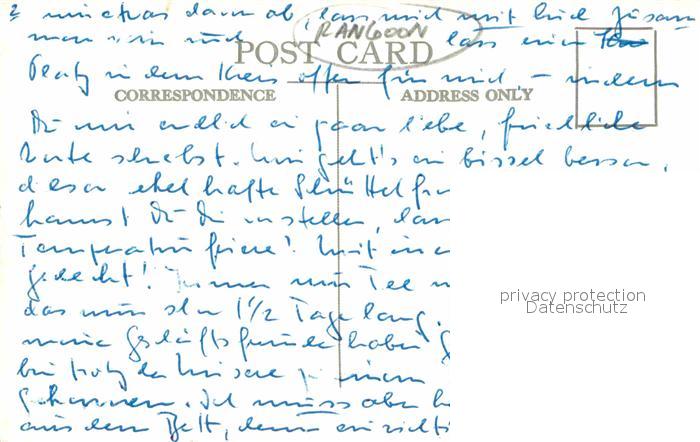 2 mir etwas davon ab, lass mich mit Euch zusam
men sein und lass einen
RANGOON
POST CARD
Platz in dem Kreis offen für mich – indem
CORRESPONDENCE ADDRESS ONLY
Du mir endlich ein paar liebe, friedliche
Worte schreibst. Mir geht's ein bissel besser,
dieser ekelhafte Schüttelfro
kannst Du Dir vorstellen, dass
Temperatur friere! Mit
gedeckt! Immer nur Tee
das nun schon 1 1/2 Tage lang.
meine Geschäftsfreunde haben
bin trotz der Misere zu einem
gekommen. Ich muss aber
aus dem Bett, denn ein richti
privacy protection
Datenschutz